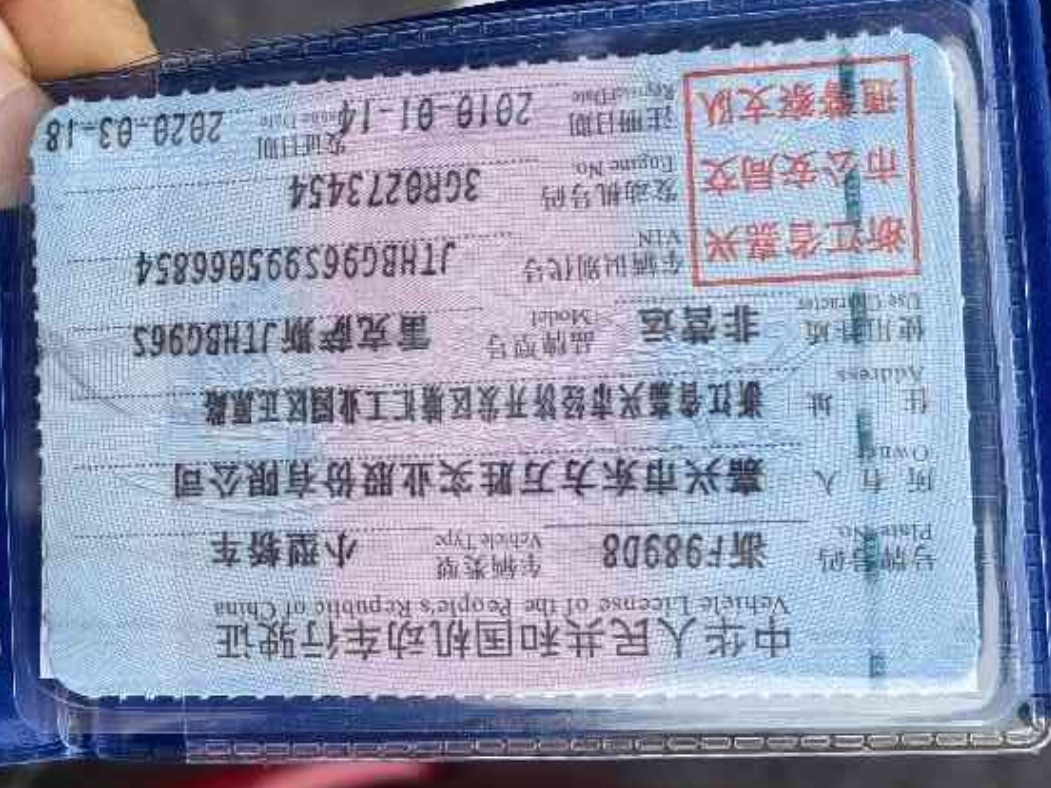 中华人民共和国机动车行驶证
Vehicle License of the People's Republic of China
号牌号码 浙F989D8 车辆类型 小型轿车
Plate No. Vehicle Type
所有人 嘉兴市东方万胜实业股份有限公司
Owner
住址 浙江省嘉兴市经济开发区塘汇工业园区正原路
Address
使用性质 非营运 品牌型号 雷克萨斯JTHBG96S
Use Character Model
浙江省嘉兴市公安局交通警察支队
车辆识别代号 JTHBG96S995066854
VIN
发动机号码 3GR0273454
Engine No.
注册日期 2010-01-14 发证日期 2020-03-18
Register Date Issue Date